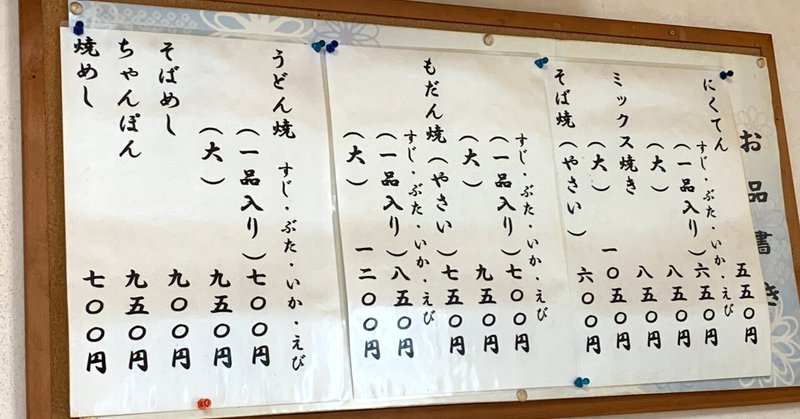 お品書き
にくてん 五五〇円
すじ・ぶた・いか・えび
(一品入り) 六五〇円
(大) 八五〇円
ミックス焼き 八五〇円
(大) 一〇五〇円
そば焼(やさい) 六〇〇円
すじ・ぶた・いか・えび
(一品入り) 七〇〇円
(大) 九五〇円
もだん焼(やさい) 七五〇円
すじ・ぶた・いか・えび
(一品入り) 八五〇円
(大) 一二〇〇円
うどん焼 すじ・ぶた・いか・えび
(一品入り) 七〇〇円
(大) 九五〇円
そばめし 九〇〇円
ちゃんぽん 九五〇円
焼めし 七〇〇円